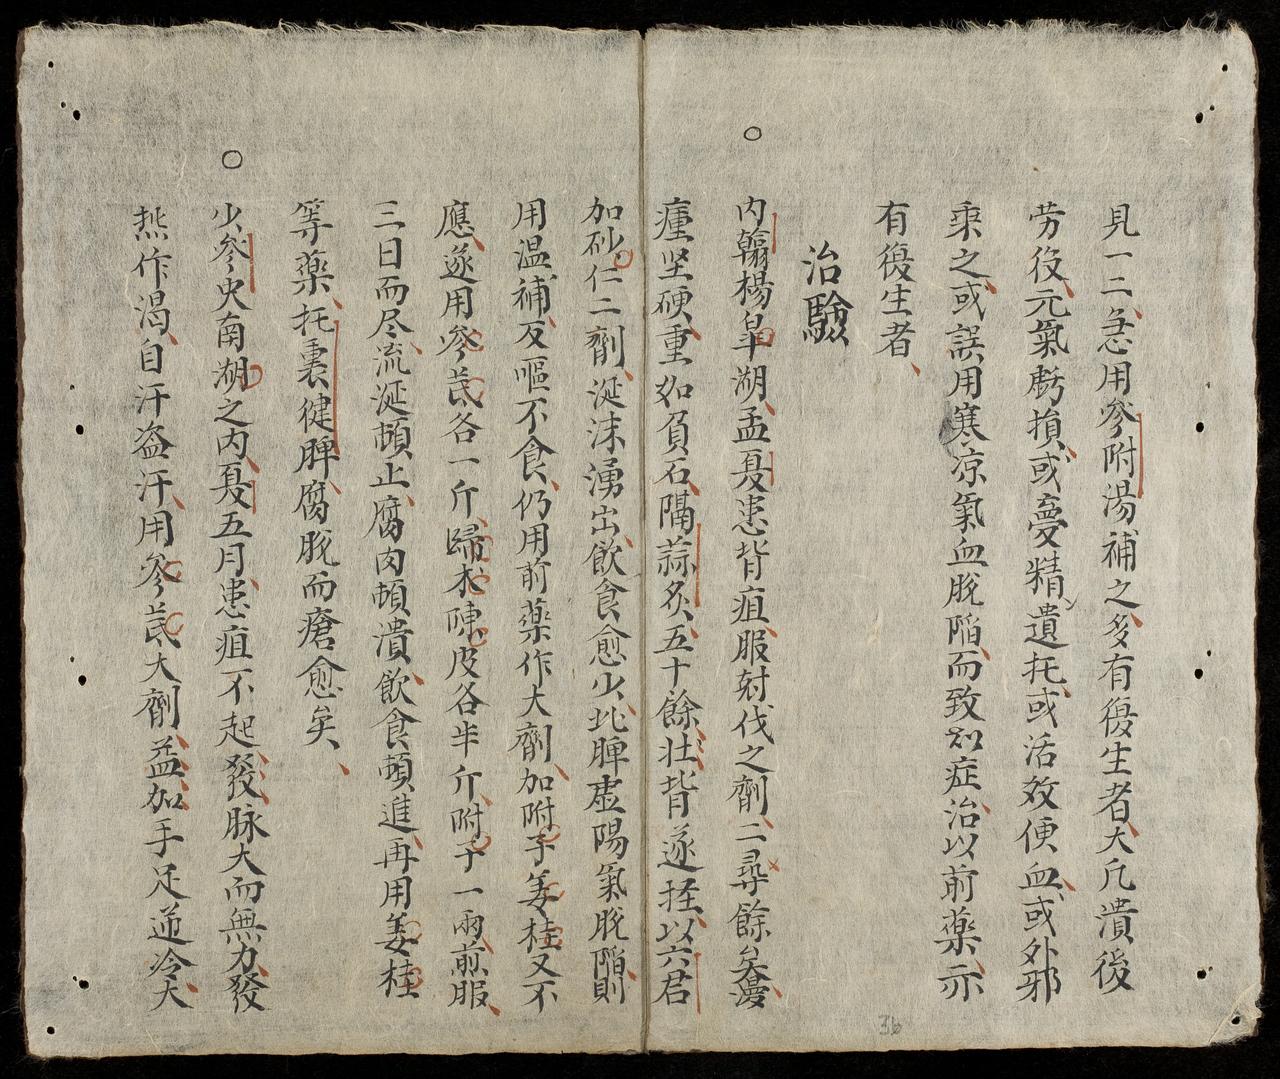 見一二、急用參附湯補之、多有復生者、大凡潰後
劳役、元氣虧損、或憂精遺托、或活效便血、或外邪
乘之、或誤用寒凉、氣血脫陷、而致如症、治以前藥、亦
有復生者、
治驗
○
內翰楊皐湖、孟夏患背疽、服尅伐之劑、二尋餘矣、漫
瘇坚硬、重如負石、隔蒜炙、五十餘壮、背遂抂、以六君
加砂仁二劑、涎沫湧出、飲食愈少、此脾虚陽氣脫陷、則
用温補、反嘔不食、仍用前藥作大劑、加附子姜桂又不
應、遂用參芪各一斤、歸朮陳皮各半斤、附子一兩、煎服、
三日而尽、流涎頓止、腐肉頓潰、飲食頓進、再用姜桂
等藥、托裏健脾、腐脫而瘡愈矣、
○
少參史南湖之內、夏五月患疽不起、發脉大而無力、發
热作渴、自汗盗汗、用參芪大劑、益加手足逆冷、大
36